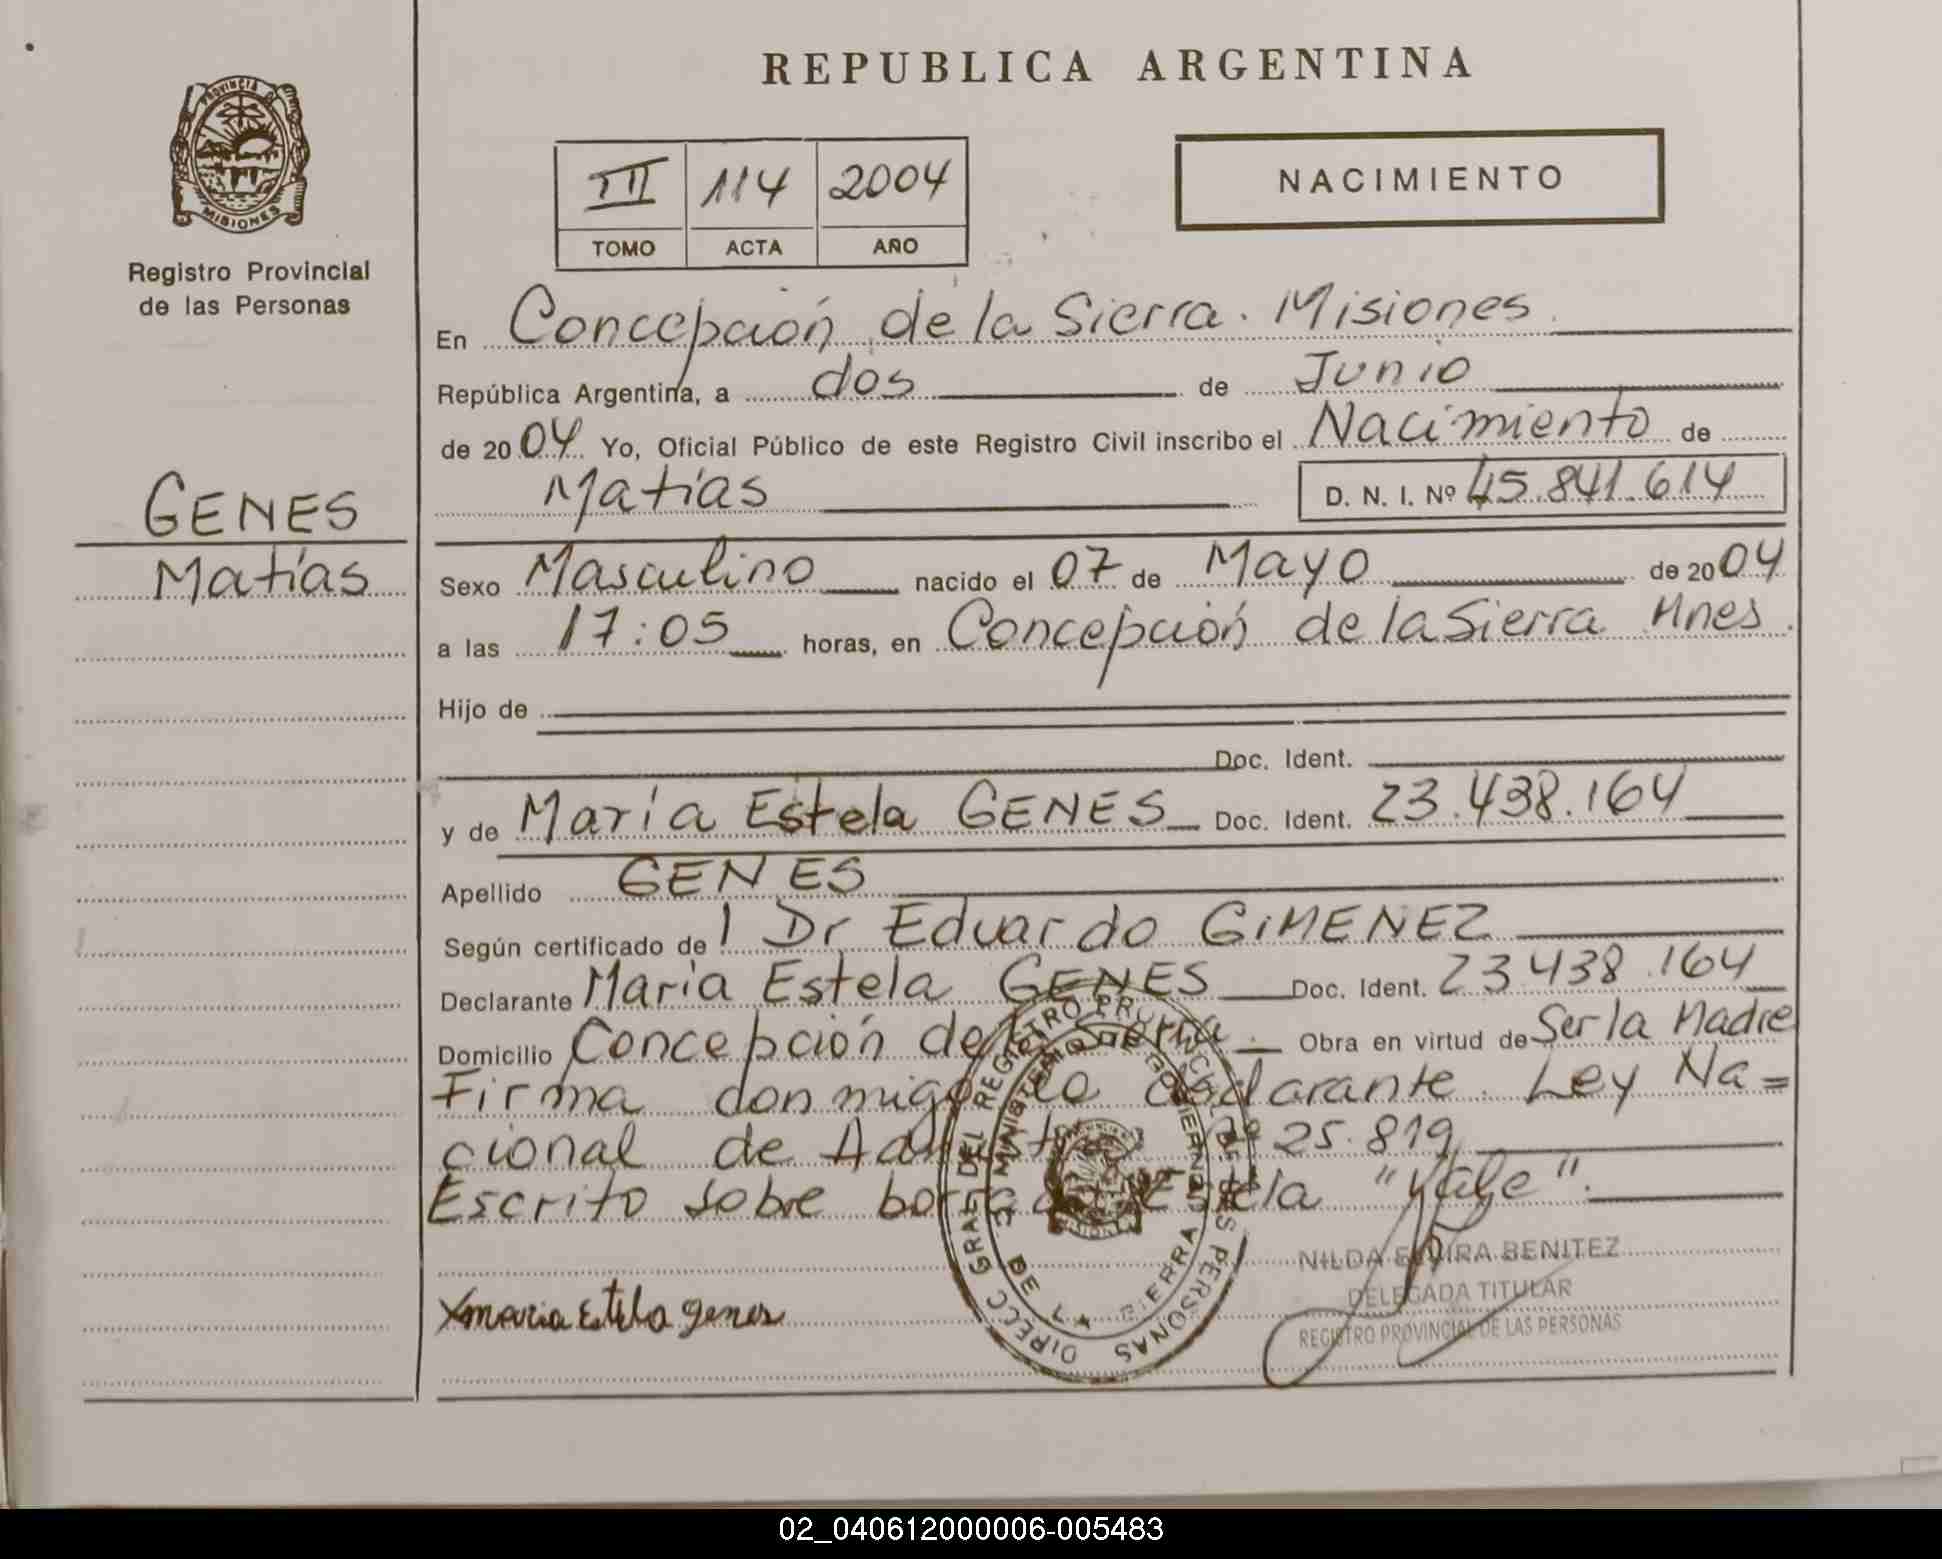 REPUBLICA ARGENTINA
PROVINCIA DE
MISIONES
Registro Provincial
de las Personas
III 114 2004
TOMO ACTA AÑO
NACIMIENTO
GENES
Matías
En Concepción de la Sierra. Misiones
República Argentina, a dos de Junio
de 2004 Yo, Oficial Público de este Registro Civil inscribo el Nacimiento de
Matías D. N. I. Nº 45.841.614
Sexo Masculino nacido el 07 de Mayo de 2004
a las 17:05 horas, en Concepción de la Sierra Mnes.
Hijo de
Doc. Ident.
y de María Estela GENES Doc. Ident. 23.438.164
Apellido GENES
Según certificado de Dr Eduardo GiMENEZ
Declarante María Estela GENES Doc. Ident. 23 438.164
Domicilio Concepción de la Sierra. Obra en virtud de Ser la Madre
Firma conmigo la declarante. Ley Na=
cional de Nº 25.819
Escrito sobre borrado Estela "Vale".
DIRECC GRAL DEL REGISTRO PROVINCIAL DE LAS PERSONAS
MINISTERIO DE GOBIERNO
DE LA SIERRA
X maria Estela genes
NILDA ELVIRA BENITEZ
DELEGADA TITULAR
REGISTRO PROVINCIAL DE LAS PERSONAS
02_040612000006-005483